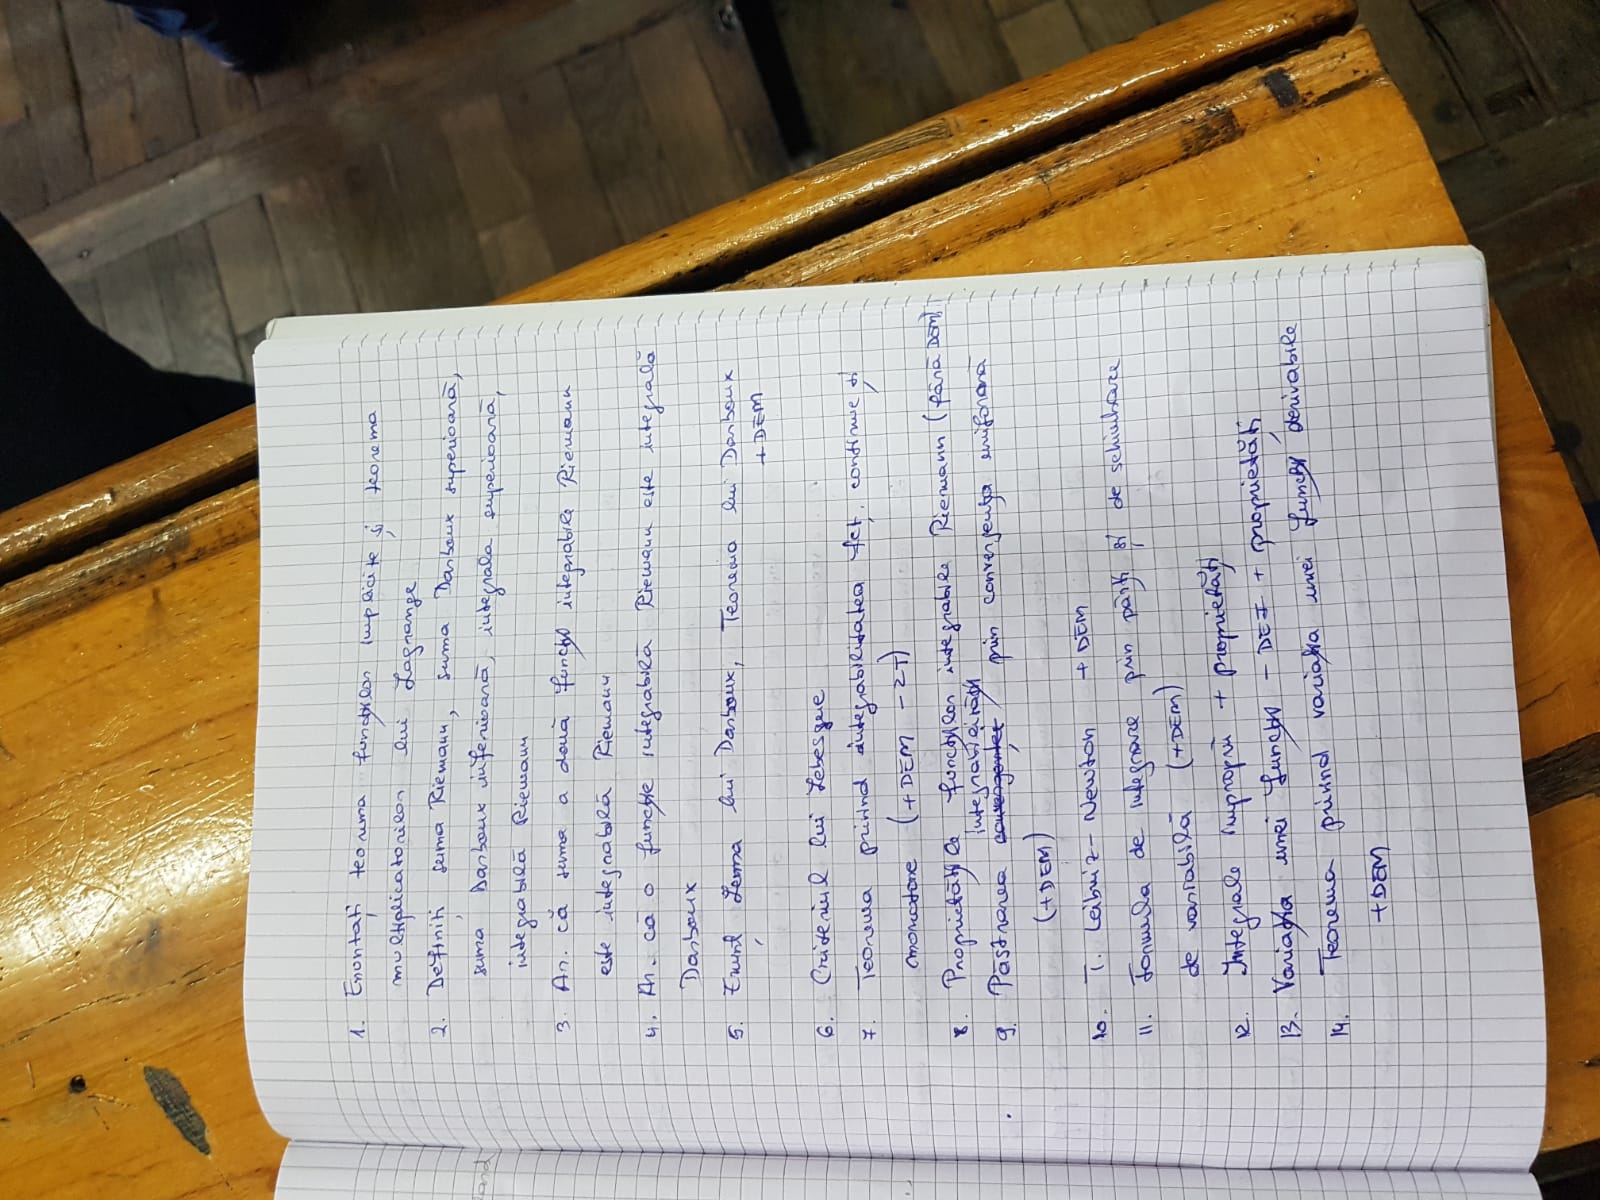 1. Enontați teorema funcțiilor implicite și teorema
multiplicatorilor lui Lagrange
2. Definiți suma Riemann, suma Darboux superioară,
suma Darboux inferioară, integrala superioară,
integrabilă Riemann
3. Ar. că suma a două funcții integrabile Riemann
este integrabilă Riemann
4. Ar. că o funcție integrabilă Riemann este integrală
Darboux
5. Enunț Lema lui Darboux, Teorema lui Darboux
+ DEM
6. Criteriul lui Lebesgue
7. Teorema privind integrabilitatea fcț. continue și
monotone (+DEM - 2T)
8. Proprietățile funcțiilor integrabile Riemann (fără DEM)
integrabilității
9. Păstrarea convergenței prin convergența uniformă
(+DEM)
10. T. Leibniz-Newton + DEM
11. Formula de integrare prin părți și de schimbare
de variabilă (+DEM)
12. Integrale improprii + proprietăți
13. Variația unei funcții - DEF + proprietăți
14. Teorema privind variația unei funcții derivabile
+DEM